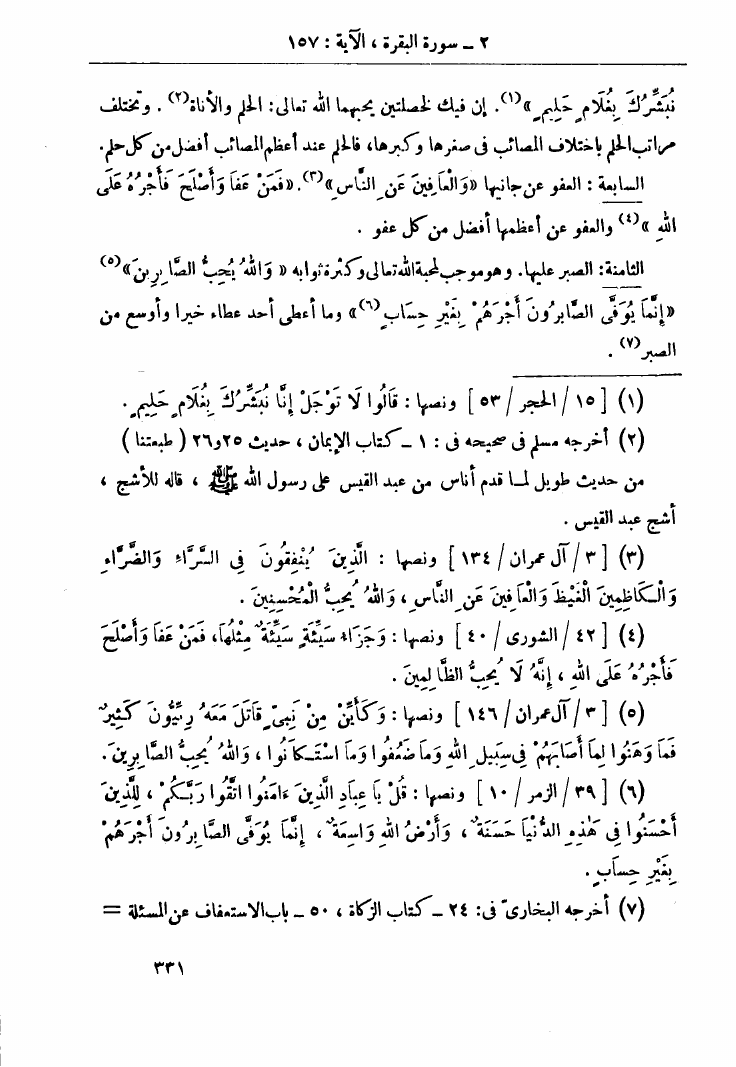 ٢ ــ سورة البقرة ، الآية : ١٥٧
نُبَشِّرُكَ بِغُلَامٍ حَلِيمٍ »(١). إن فيك لخصلتين يحبهما الله تعالى: الحلم والأناة(٢) . وتختلف
مراتب الحلم باختلاف المصائب فى صغرها وكبرها، فالحلم عند أعظم المصائب أفضل من كل حلم.
السابعة : العفو عن جانيها «وَالْعَافِينَ عَنِ النَّاسِ»(٣). «فَمَنْ عَفَا وَأَصْلَحَ فَأَجْرُهُ عَلَى
اللهِ »(٤) والعفو عن أعظمها أفضل من كل عفو .
الثامنة: الصبر عليها. وهو موجب لمحبة الله تعالى وكثرة ثوابه « وَاللهُ يُحِبُّ الصَّابِرِينَ»(٥)
«إِنَّمَا يُوَفَّى الصَّابِرُونَ أَجْرَهُمْ بِغَيْرِ حِسَابٍ(٦)» وما أعطى أحد عطاء خيرا وأوسع من
الصبر(٧) .
(١) [ ١٥ / الحجر / ٥٣ ] ونصها : قَالُوا لَا تَوْجَلْ إِنَّا نُبَشِّرُكَ بِغُلَامٍ حَلِيمٍ .
(٢) أخرجه مسلم فى صحيحه فى : ١ ــ كتاب الإيمان ، حديث ٢٥ و٢٦ ( طبعتنا )
من حديث طويل لمــا قدم أناس من عبد القيس على رسول الله ﷺ ، قاله للأشج ،
أشج عبد القيس .
(٣) [ ٣ / آل عمران / ١٣٤ ] ونصها : الَّذِينَ يُنْفِقُونَ فِى السَّرَّاءِ وَالضَّرَّاءِ
وَالْكَاظِمِينَ الْغَيْظَ وَالْعَافِينَ عَنِ النَّاسِ ، وَاللهُ يُحِبُّ الْمُحْسِنِينَ .
(٤) [ ٤٢ / الشورى / ٤٠ ] ونصها : وَجَزَاءُ سَيِّئَةٍ سَيِّئَةٌ مِثْلُهَا، فَمَنْ عَفَا وَأَصْلَحَ
فَأَجْرُهُ عَلَى اللهِ ، إِنَّهُ لَا يُحِبُّ الظَّالِمِينَ .
(٥) [ ٣ / آل عمران / ١٤٦ ] ونصها : وَكَأَيِّنْ مِنْ نَبِىٍّ قَاتَلَ مَعَهُ رِبِّيُّونَ كَثِيرٌ
فَمَا وَهَنُوا لِمَا أَصَابَهُمْ فِى سَبِيلِ اللهِ وَمَا ضَعُفُوا وَمَا اسْتَكَانُوا ، وَاللهُ يُحِبُّ الصَّابِرِينَ .
(٦) [ ٣٩ / الزمر / ١٠ ] ونصها : قُلْ يَا عِبَادِ الَّذِينَ ءَامَنُوا اتَّقُوا رَبَّكُمْ ، لِلَّذِينَ
أَحْسَنُوا فِى هَٰذِهِ الدُّنْيَا حَسَنَةٌ ، وَأَرْضُ اللهِ وَاسِعَةٌ ، إِنَّمَا يُوَفَّى الصَّابِرُونَ أَجْرَهُمْ
بِغَيْرِ حِسَابٍ .
(٧) أخرجه البخارىّ فى: ٢٤ ــ كتاب الزكاة ، ٥٠ ــ باب الاستعفاف عن المسئلة =
٣٣١